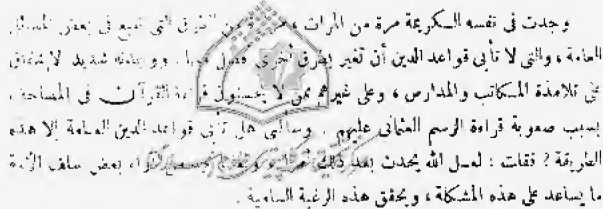 وجدت فى نفسه السكريمة مرة من المرات ، من الطرق التى تتبع فى بعض المسائل
العامة ، والتى لا تأبى قواعد الدين أن تغير بطرق أخرى ووجدته شديد الإشفاق
على تلامذة المكاتب والمدارس ، وعلى غيرهم ممن لا يحسنون قراءة القرآن فى المصاحف ،
بسبب صعوبة قراءة الرسم العثمانى عليهم . وسألنى هل تأبى قواعد الدين العامة إلا هذه
الطريقة ? فقلت : لعل الله يحدث بعد ذلك آراء بعض سلف الأمة
ما يساعد على هذه المشكلة ، ويحقق هذه الرغبة السامية .